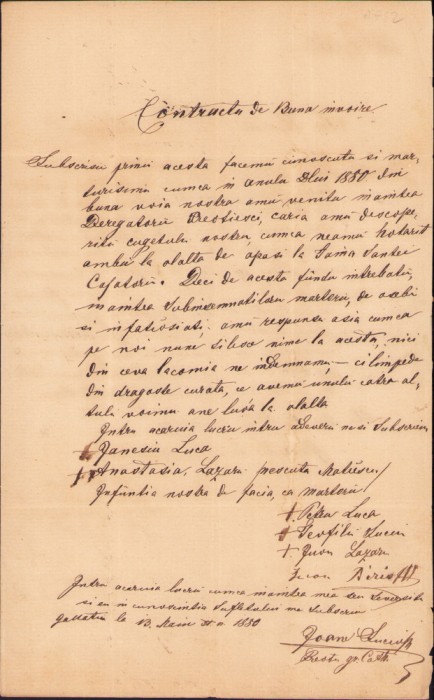 Contractu de Buna invoire
Subscrisii prin acesta facemu cunoscutu si mar-
turisimu cumca in anulu Dlui 1880 din
buna voia nostra amu venitu inaintea
Deregatoriu Pretiesci, caria amu descope-
ritu cugetulu nostru cumca neamu hotarit
ambii la olalta de apasi la Taina Santei
Casatorii. Deci de acesta fiindu intrebatu,
inaintea Subinsemnatiloru martoru, de osebi
si infatiosiati, amu respunsu asia cumca
pe noi nune silesce nime la acesta, nici
din ceva lacomia ne indemnamu – ci limpede
din dragoste curata, ce avemu unulu catra al-
tulu voimu ane luá la olalta
Intru acaruia lucru intru adeveru ne si Subscriem
Ianesiu Luca
+ Anastasia Lazaru nescuta Mateescu
Infiintia nostra de facia, ca martoru
+ Petru Luca
+ Teofilu Luciu
+ Iuon Lazaru
Iuon
Intru acaruia lucru cumca inaintea mea seu
si eu in cunoscintia Sufletului me Subscriu
la 13. Maiu 1880
Ioanu
Preotu gr. Cath.